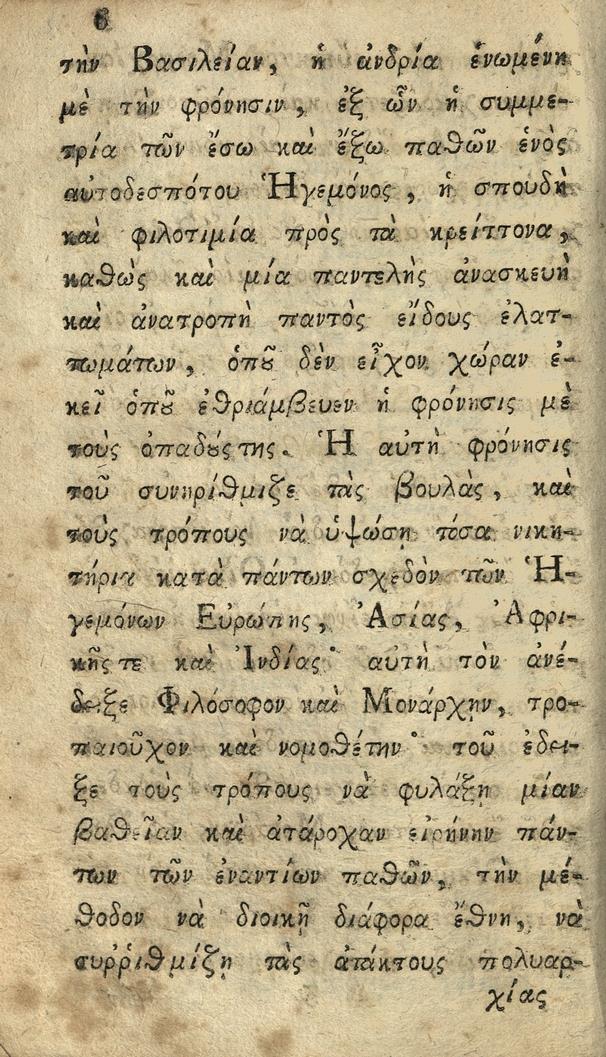 6
τὴν Βασιλείαν, ἡ ἀνδρία ἑνωμένη
μὲ τὴν φρόνησιν, ἐξ ὧν ἡ συμμε-
τρία τῶν ἔσω καὶ ἔξω παθῶν ἑνὸς
αὐτοδεσπότου Ἡγεμόνος, ἡ σπουδὴ
καὶ φιλοτιμία πρὸς τὰ κρείττονα,
καθὼς καὶ μία παντελὴς ἀνασκευὴ
καὶ ἀνατροπὴ παντὸς εἴδους ἐλατ-
τωμάτων, ὁπȣ͂ δὲν εἶχον χώραν ἐ-
κεῖ ὁπȣ͂ ἐθριάμβευεν ἡ φρόνησις μὲ
τοὺς ὀπαδȣ́ς της. Ἡ αὐτὴ φρόνησις
τοῦ συνηρίθμιζε τὰς βουλὰς, καὶ
τοὺς τρόπους νὰ ὑψώσῃ τόσα νικη-
τήρια κατὰ πάντων σχεδὸν τῶν Ἡ-
γεμόνων Εὐρώπης, Ἀσίας, Ἀφρι-
κῆς τε καὶ Ἰνδίας· αὐτὴ τὸν ἀνέ-
δειξε Φιλόσοφον καὶ Μονάρχην, τρο-
παιοῦχον καὶ νομοθέτην· τοῦ ἔδει-
ξε τοὺς τρόπους νὰ φυλάξῃ μίαν
βαθεῖαν καὶ ἀτάροχαν εἰρήνην πάν-
των τῶν ἐναντίων παθῶν, τὴν μέ-
θοδον νὰ διοικῇ διάφορα ἔθνη, νὰ
συῤῥιθμίζῃ τὰς ἀτάκτους πολυαρ-
χίας